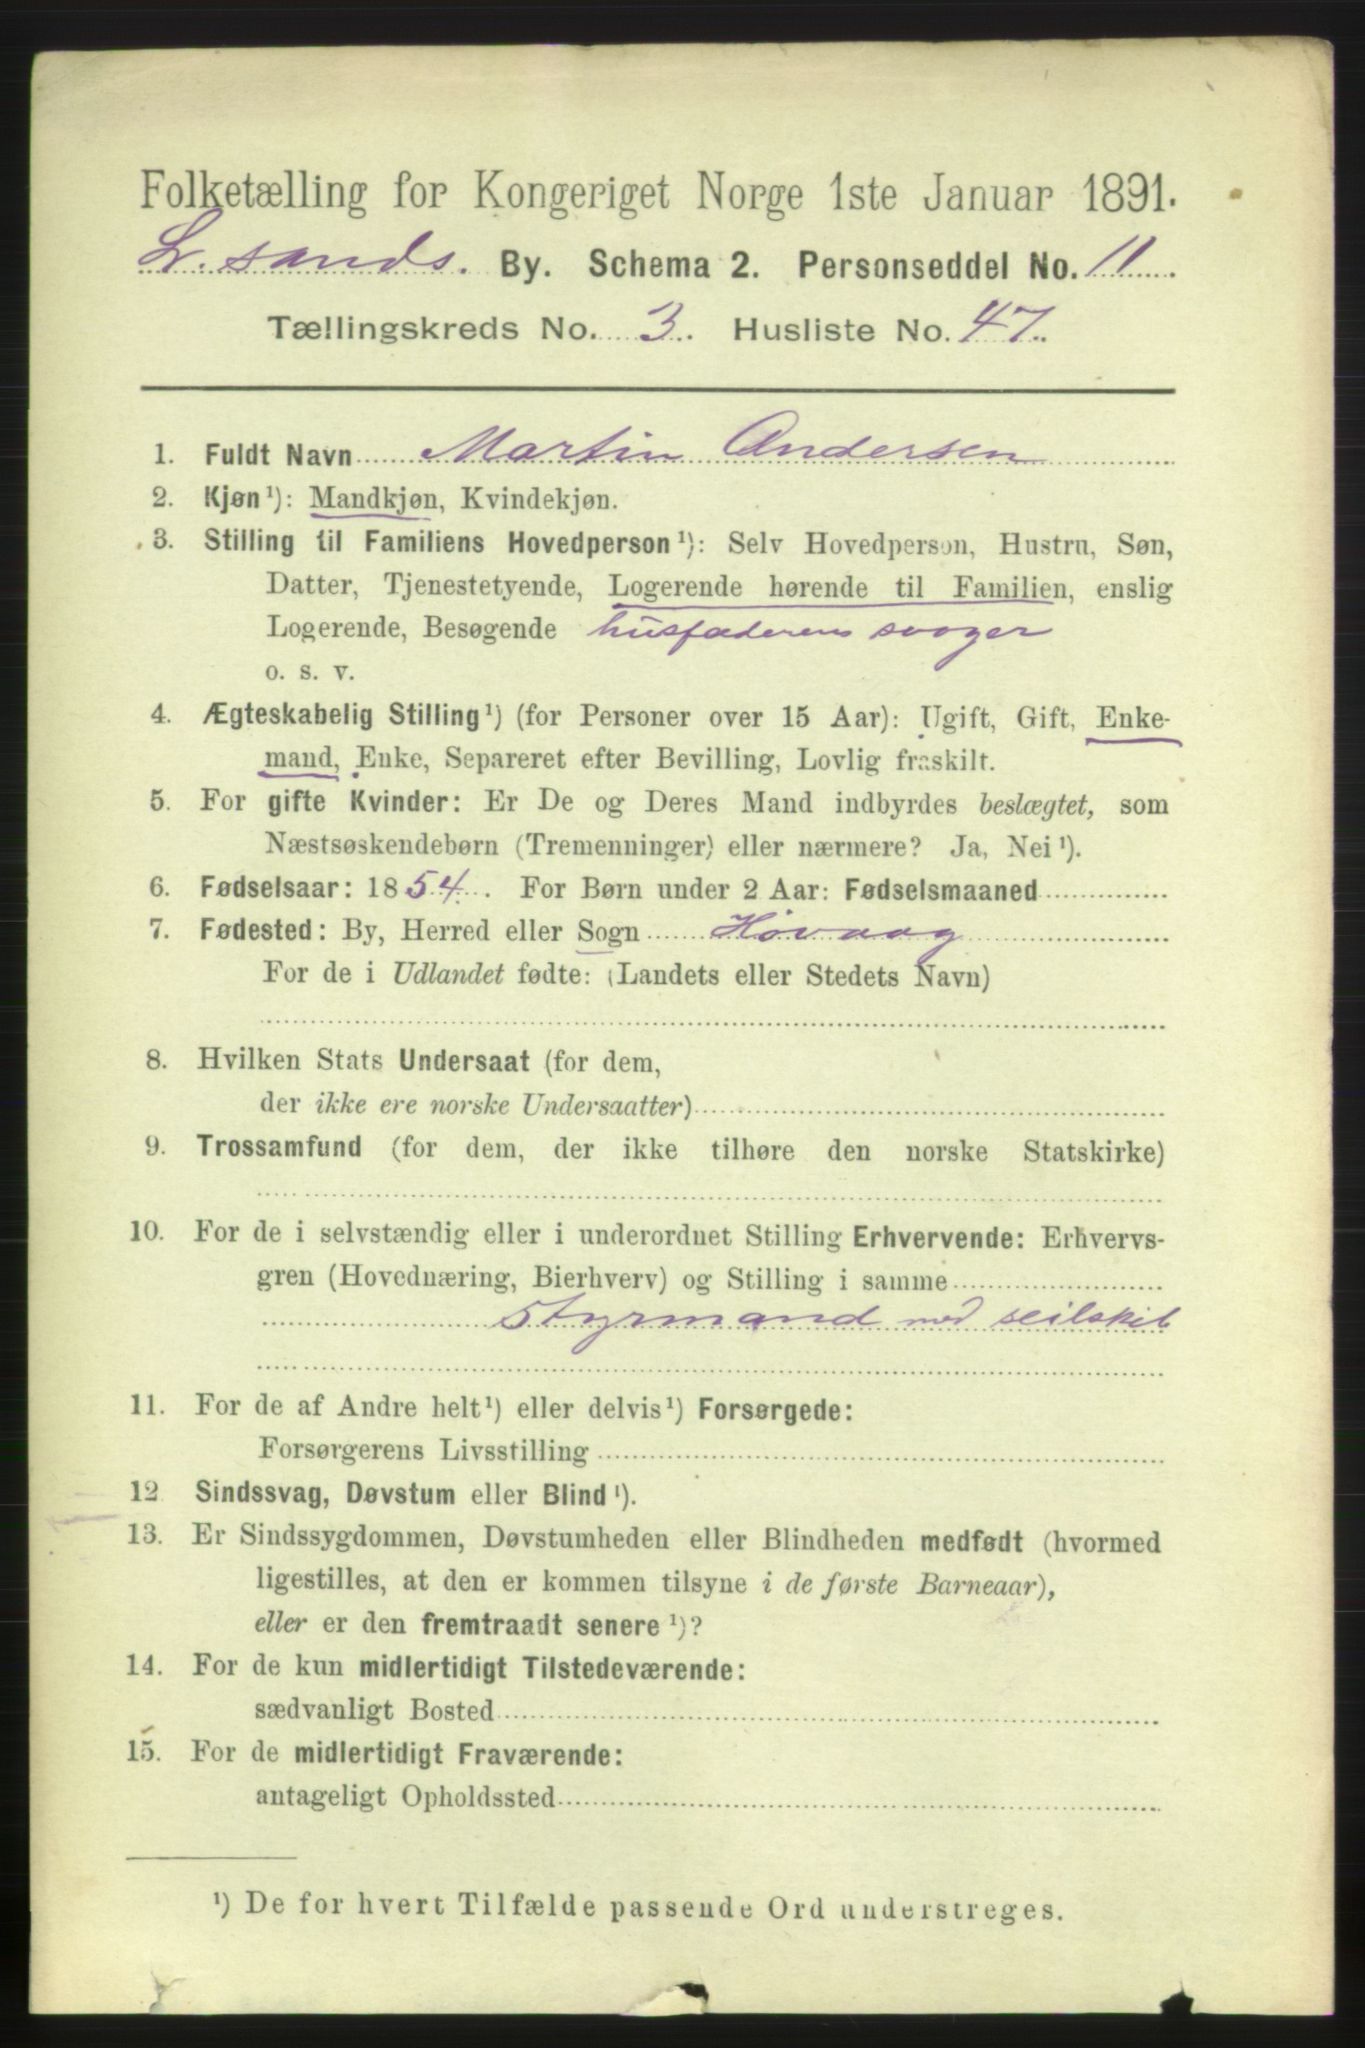 Folketælling for Kongeriget Norge 1ste Januar 1891.
L. sands. By. Schema 2. Personseddel No. 11
Tællingskreds No. 3. Husliste No. 47.
1. Fuldt Navn Martin Andersen
2. Kjøn ¹): Mandkjøn, Kvindekjøn.
3. Stilling til Familiens Hovedperson ¹): Selv Hovedperson, Hustru, Søn,
Datter, Tjenestetyende, Logerende hørende til Familien, enslig
Logerende, Besøgende husfaderens svoger
o. s. v.
4. Ægteskabelig Stilling ¹) (for Personer over 15 Aar): Ugift, Gift, Enke-
mand, Enke, Separeret efter Bevilling, Lovlig fraskilt.
5. For gifte Kvinder: Er De og Deres Mand indbyrdes beslægtet, som
Næstsøskendebørn (Tremenninger) eller nærmere? Ja, Nei ¹).
6. Fødselsaar: 1854. For Børn under 2 Aar: Fødselsmaaned
7. Fødested: By, Herred eller Sogn Høvaag
For de i Udlandet fødte: (Landets eller Stedets Navn)
8. Hvilken Stats Undersaat (for dem,
der ikke ere norske Undersaatter)
9. Trossamfund (for dem, der ikke tilhøre den norske Statskirke)
10. For de i selvstændig eller i underordnet Stilling Erhvervende: Erhvervs-
gren (Hovednæring, Bierhverv) og Stilling i samme
Styrmand med seilskib
11. For de af Andre helt ¹) eller delvis ¹) Forsørgede:
Forsørgerens Livsstilling
12 Sindssvag, Døvstum eller Blind ¹).
13. Er Sindssygdommen, Døvstumheden eller Blindheden medfødt (hvormed
ligestilles, at den er kommen tilsyne i de første Barneaar),
eller er den fremtraadt senere ¹)?
14. For de kun midlertidigt Tilstedeværende:
sædvanligt Bosted
15. For de midlertidigt Fraværende:
antageligt Opholdssted
¹) De for hvert Tilfælde passende Ord understreges.